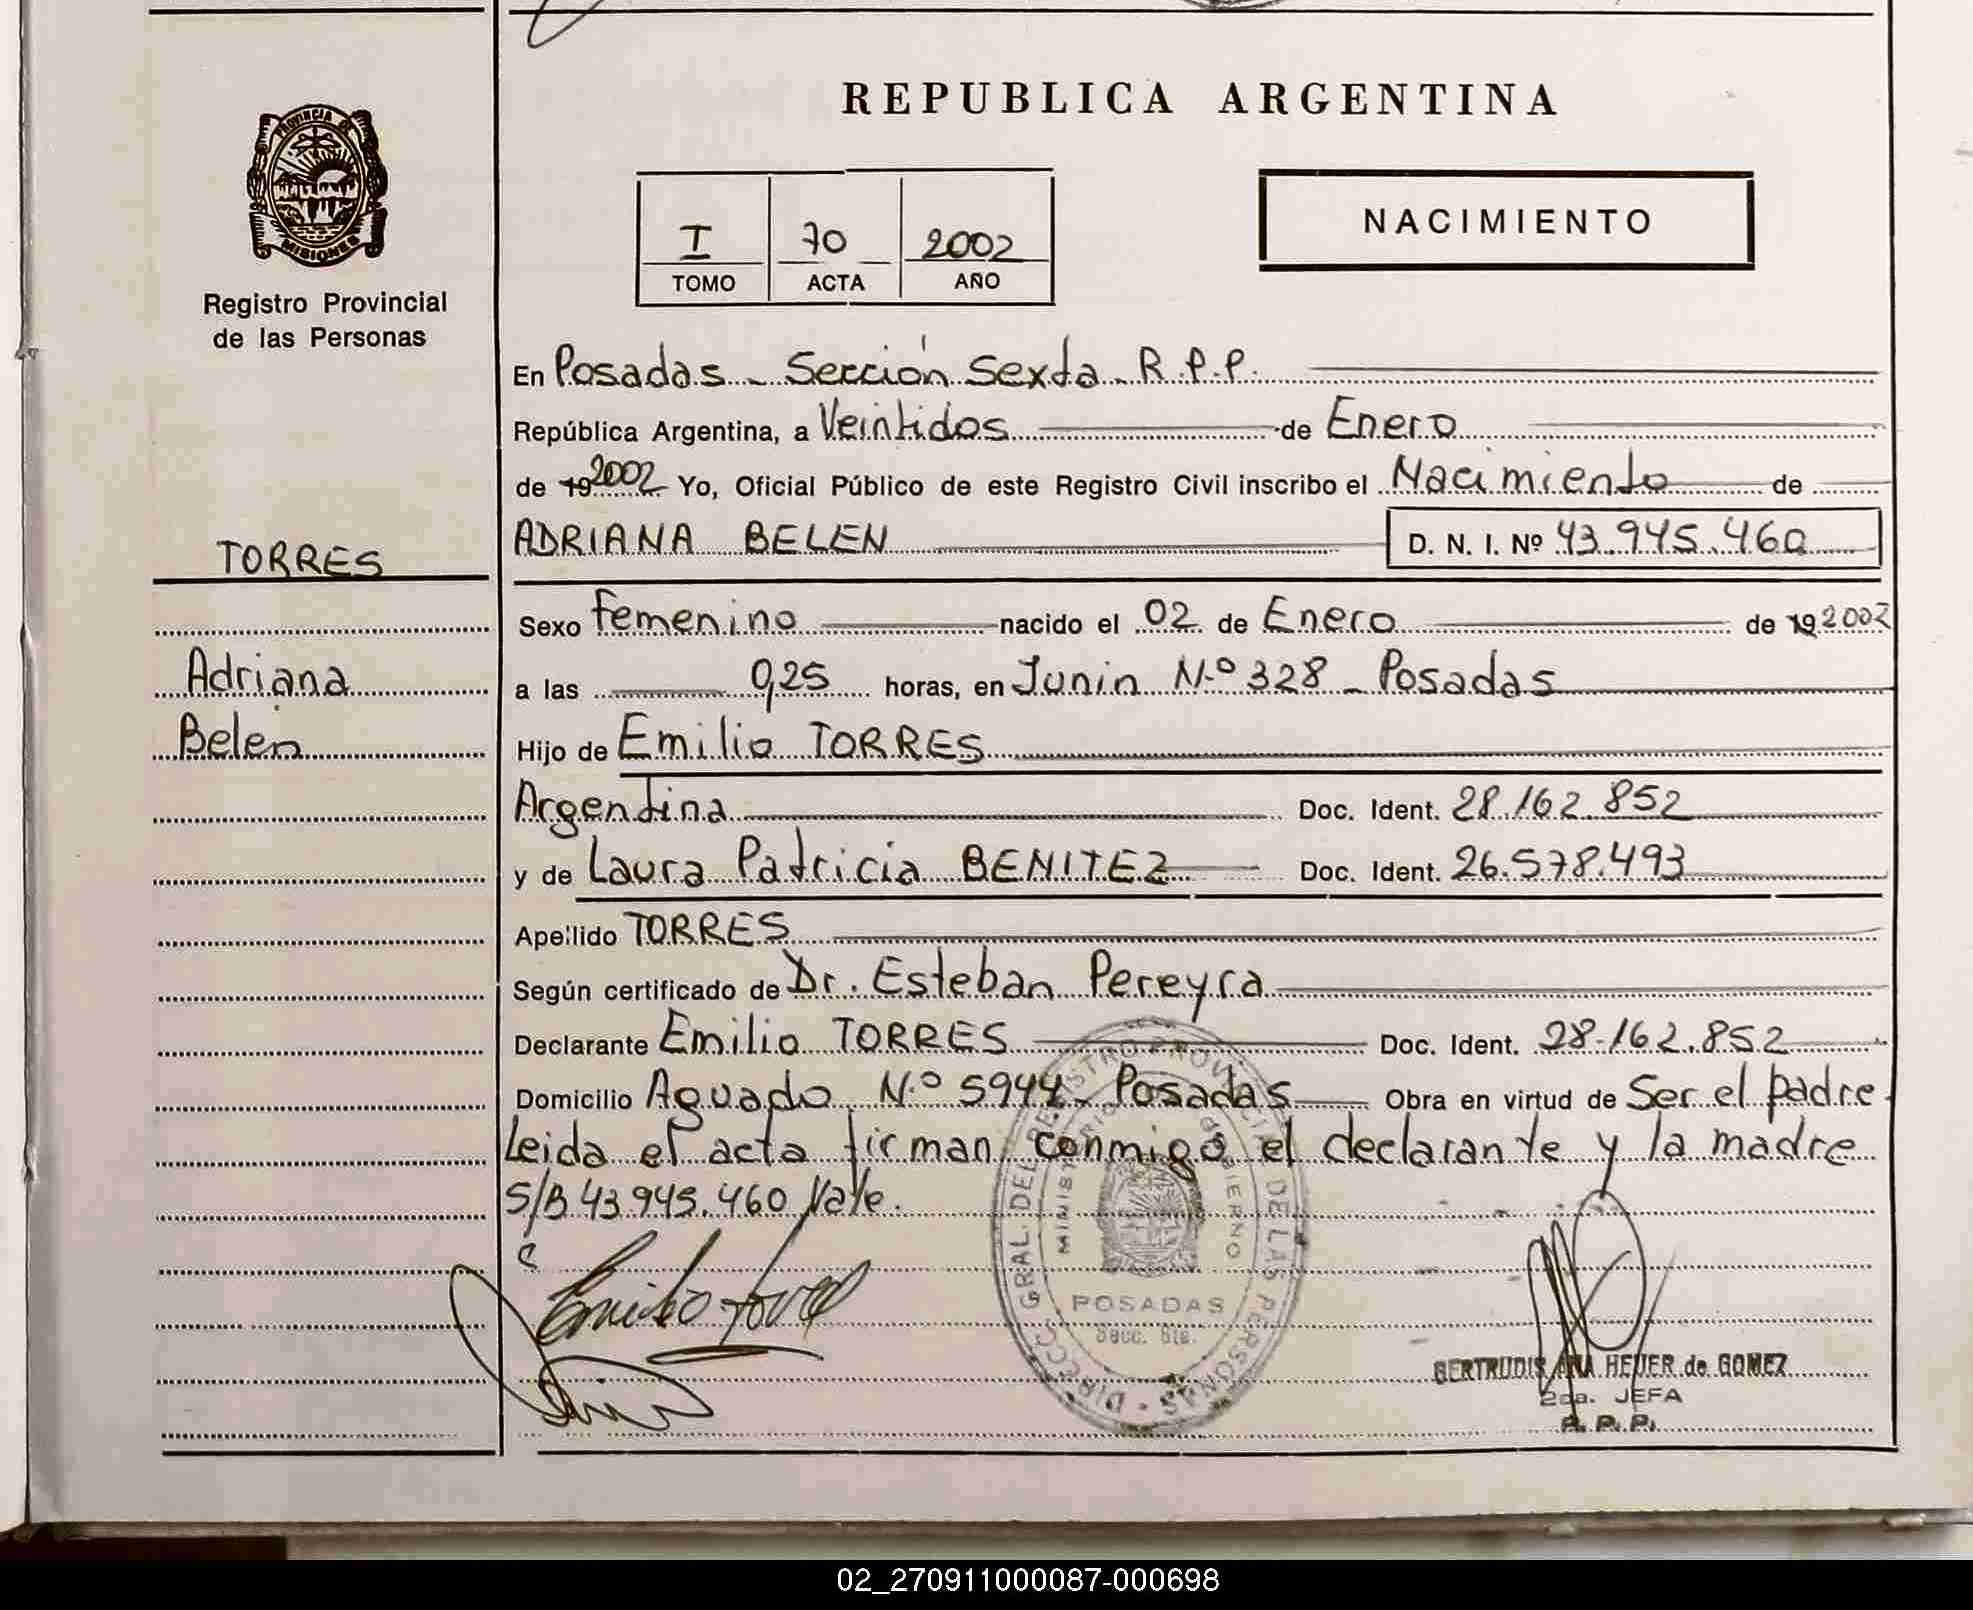 REPUBLICA ARGENTINA
PROVINCIA DE
MISIONES
Registro Provincial
de las Personas
I 70 2002
TOMO ACTA AÑO
NACIMIENTO
En Posadas - Sección Sexta - R.P.P.
República Argentina, a Veintidos de Enero
de 19 2002 Yo, Oficial Público de este Registro Civil inscribo el Nacimiento de
ADRIANA BELEN D. N. I. Nº 43.945.460
TORRES
Adriana
Belen
Sexo Femenino nacido el 02 de Enero de 19 2002
a las 0,25 horas, en Junin N.º 328 - Posadas
Hijo de Emilio TORRES
Argentina Doc. Ident. 28.162.852
y de Laura Patricia BENITEZ Doc. Ident. 26.578.493
Apellido TORRES
Según certificado de Dr. Esteban Pereyra
Declarante Emilio TORRES Doc. Ident. 28.162.852
Domicilio Aguado N.º 5944 - Posadas Obra en virtud de Ser el padre.
Leida el acta firman conmigo el declarante y la madre
S/B 43.945.460 Vale.
Emilio Torres
DIRECC. GRAL. DEL REGISTRO PROVINCIAL DE LAS PERSONAS
MINISTERIO DE GOBIERNO
POSADAS
Secc. 6ta.
GERTRUDIS ANA HEUER de GOMEZ
2da. JEFA
R. P. P.
02_270911000087-000698